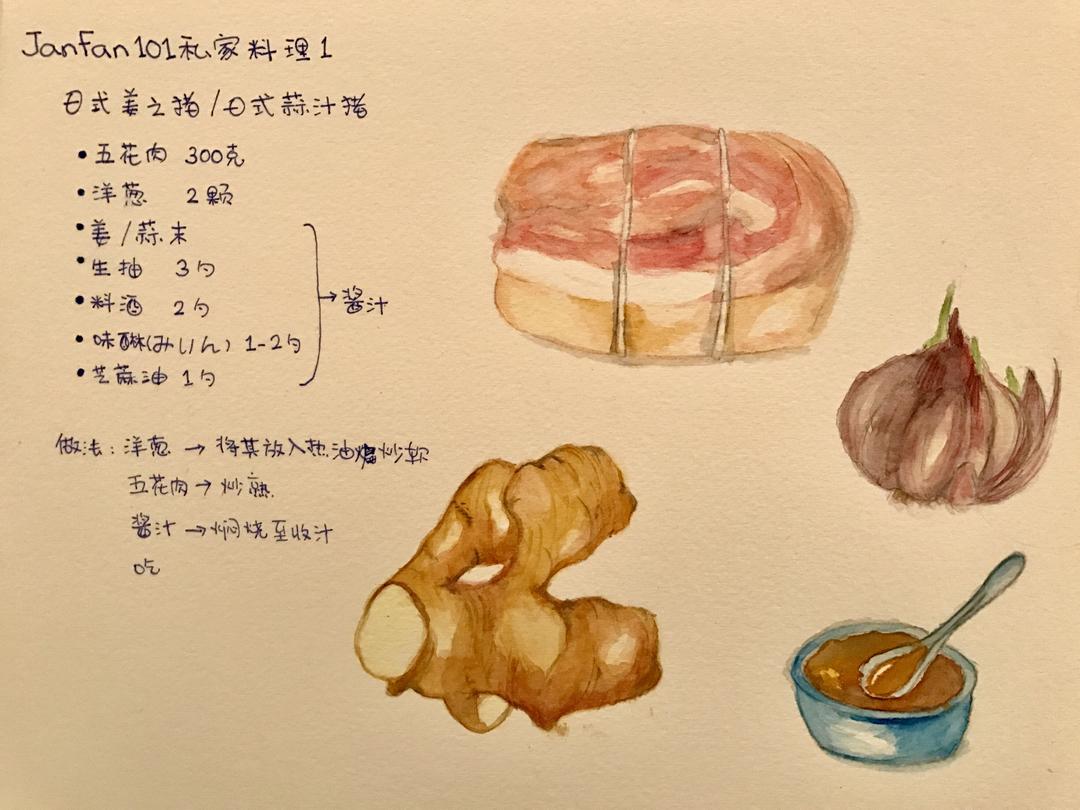 Janfan101私家料理1
日式姜之猪/日式蒜汁猪
•五花肉 300克
•洋葱 2颗
•姜/蒜末
•生抽 3勺
•料酒 2勺
→酱汁
•味醂(みりん) 1-2勺
•芝蔴油 1勺
做法:洋葱→将其放入热油煸炒软
五花肉→炒熟.
酱汁→焖烧至收汁
吃